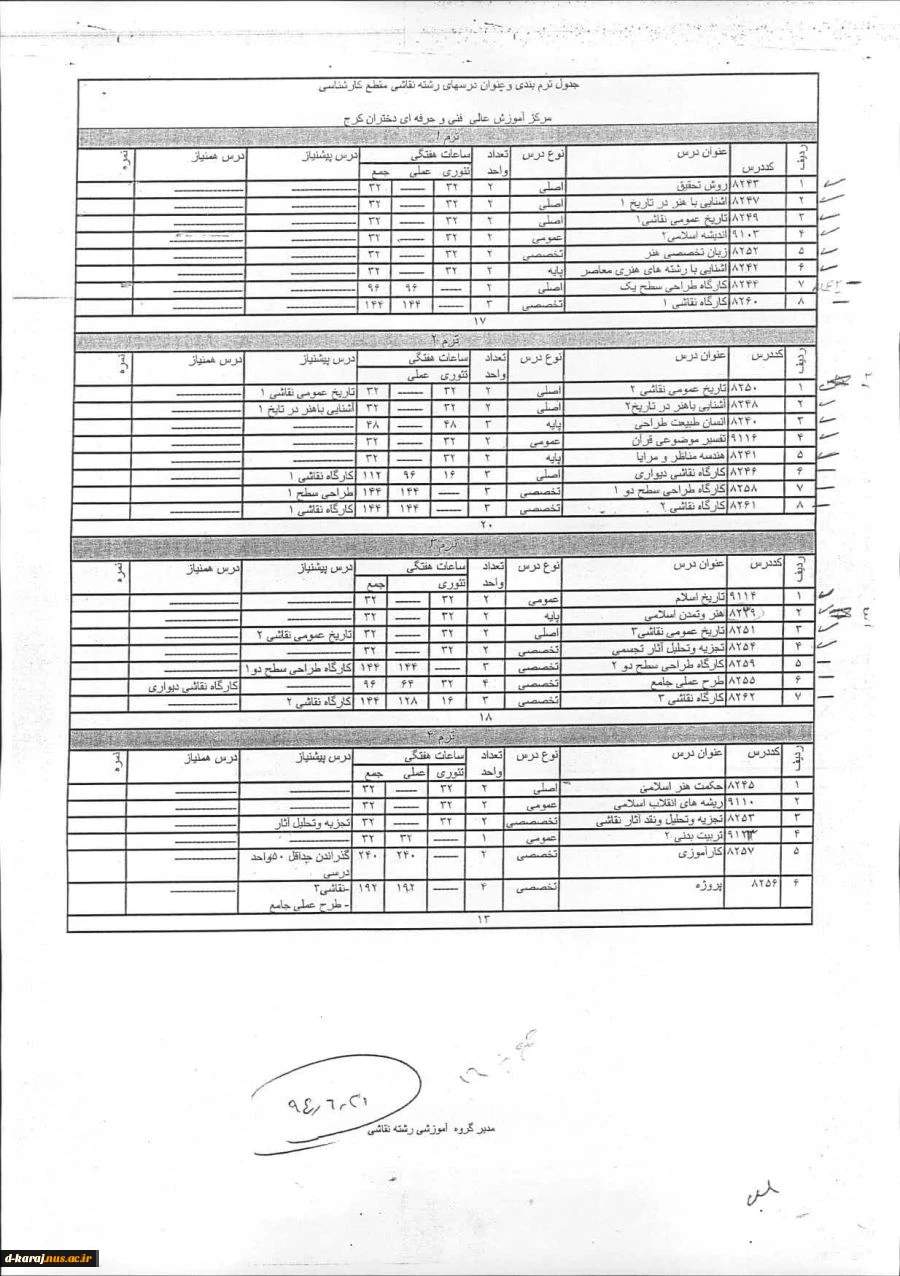 جدول ترم بندی وعنوان درسهای رشته نقاشی مقطع کارشناسی
مرکز آموزش عالی فنی و حرفه ای دختران کرج
ترم ۱
ردیف کددرس عنوان درس نوع درس تعداد واحد ساعات هفتگی تئوری عملی جمع درس پیشنیاز درس همنیاز نمره
۱ ۸۲۴۳ روش تحقیق اصلی ۲ ۳۲ ---- ۳۲
۲ ۸۲۴۷ آشنایی با هنر در تاریخ ۱ اصلی ۲ ۳۲ ---- ۳۲
۳ ۸۲۴۹ تاریخ عمومی نقاشی۱ اصلی ۲ ۳۲ ---- ۳۲
۴ ۹۱۰۳ اندیشه اسلامی۲ عمومی ۲ ۳۲ ---- ۳۲
۵ ۸۲۵۲ زبان تخصصی هنر تخصصی ۲ ۳۲ ---- ۳۲
۶ ۸۲۴۲ آشنایی با رشته های هنری معاصر پایه ۲ ۳۲ ---- ۳۲
۷ ۸۲۴۴ کارگاه طراحی سطح یک اصلی ۲ ---- ۹۶ ۹۶
۸ ۸۲۶۰ کارگاه نقاشی ۱ تخصصی ۳ ---- ۱۴۴ ۱۴۴
۱۷
ترم ۲
ردیف کددرس عنوان درس نوع درس تعداد واحد ساعات هفتگی تئوری عملی درس پیشنیاز درس همنیاز نمره
۱ ۸۲۵۰ تاریخ عمومی نقاشی ۲ اصلی ۲ ۳۲ ---- ۳۲ تاریخ عمومی نقاشی ۱
۲ ۸۲۴۸ آشنایی باهنر در تاریخ۲ اصلی ۲ ۳۲ ---- ۳۲ آشنایی باهنر در تایخ ۱
۳ ۸۲۴۰ انسان طبیعت طراحی پایه ۳ ۴۸ ---- ۴۸
۴ ۹۱۱۶ تفسیر موضوعی قرآن عمومی ۲ ۳۲ ---- ۳۲
۵ ۸۲۴۱ هندسه مناظر و مرایا پایه ۲ ۳۲ ---- ۳۲
۶ ۸۲۴۶ کارگاه نقاشی دیواری اصلی ۳ ۱۶ ۹۶ ۱۱۲ کارگاه نقاشی ۱
۷ ۸۲۵۸ کارگاه طراحی سطح دو ۱ تخصصی ۳ ---- ۱۴۴ ۱۴۴ طراحی سطح ۱
۸ ۸۲۶۱ کارگاه نقاشی ۲ تخصصی ۳ ---- ۱۴۴ ۱۴۴ کارگاه نقاشی ۱
۲۰
ترم ۳
ردیف کددرس عنوان درس نوع درس تعداد واحد ساعات هفتگی تئوری جمع درس پیشنیاز درس همنیاز نمره
۱ ۹۱۱۴ تاریخ اسلام عمومی ۲ ۳۲ ---- ۳۲
۲ ۸۲۳۹ هنر وتمدن اسلامی پایه ۲ ۳۲ ---- ۳۲
۳ ۸۲۵۱ تاریخ عمومی نقاشی۳ اصلی ۲ ۳۲ ---- ۳۲ تاریخ عمومی نقاشی ۲
۴ ۸۲۵۴ تجزیه وتحلیل آثار تجسمی تخصصی ۲ ۳۲ ---- ۳۲
۵ ۸۲۵۹ کارگاه طراحی سطح دو ۲ تخصصی ۳ ---- ۱۴۴ ۱۴۴ کارگاه طراحی سطح دو۱
۶ ۸۲۵۵ طرح عملی جامع تخصصی ۴ ۳۲ ۶۴ ۹۶ کارگاه نقاشی دیواری
۷ ۸۲۶۲ کارگاه نقاشی ۳ تخصصی ۳ ۱۶ ۱۲۸ ۱۴۴ کارگاه نقاشی ۲
۱۸
ترم ۴
ردیف کددرس عنوان درس نوع درس تعداد واحد ساعات هفتگی تئوری عملی جمع درس پیشنیاز درس همنیاز نمره
۱ ۸۲۴۵ حکمت هنر اسلامی اصلی ۲ ۳۲ ---- ۳۲
۲ ۹۱۱۰ ریشه های انقلاب اسلامی عمومی ۲ ۳۲ ---- ۳۲
۳ ۸۲۵۳ تجزیه وتحلیل ونقد آثار نقاشی تخصصصی ۲ ۳۲ ---- ۳۲ تجزیه وتحلیل آثار
۴ تربیت بدنی ۲ عمومی ۱ ---- ۳۲ ۳۲
۵ ۸۲۵۷ کارآموزی تخصصی ۲ ---- ۲۴۰ ۲۴۰ گذراندن حداقل ۵۰واحد درسی
۶ ۸۲۵۶ پروژه تخصصی ۴ ---- ۱۹۲ ۱۹۲ -نقاشی۳
- طرح عملی جامع
۱۳
۹۴,۶,۲۱
مدیر گروه آموزشی رشته نقاشی
d-karaj.nus.ac.ir